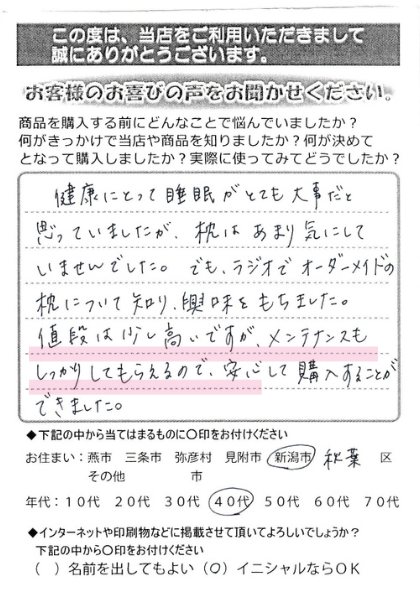 この度は、当店をご利用いただきまして
誠にありがとうございます。
お客様のお喜びの声をお聞かせください。
商品を購入する前にどんなことで悩んでいましたか?
何がきっかけで当店や商品を知りましたか?何が決めて
となって購入しましたか?実際に使ってみてどうでしたか?
健康にとって睡眠がとても大事だと
思っていましたが、枕はあまり気にして
いませんでした。でも、ラジオでオーダーメイドの
枕について知り、興味をもちました。
値段は少し高いですが、メンテナンスも
しっかりしてもらえるので、安心して購入することが
できました。
◆下記の中から当てはまるものに○印をお付けください
お住まい:燕市 三条市 弥彦村 見附市 新潟市 秋葉 区
その他 市
年代:10代 20代 30代 40代 50代 60代 70代
◆インターネットや印刷物などに掲載させて頂いてよろしいでしょうか?
下記の中から○印をお付けください
( )名前を出してもよい (○)イニシャルならOK